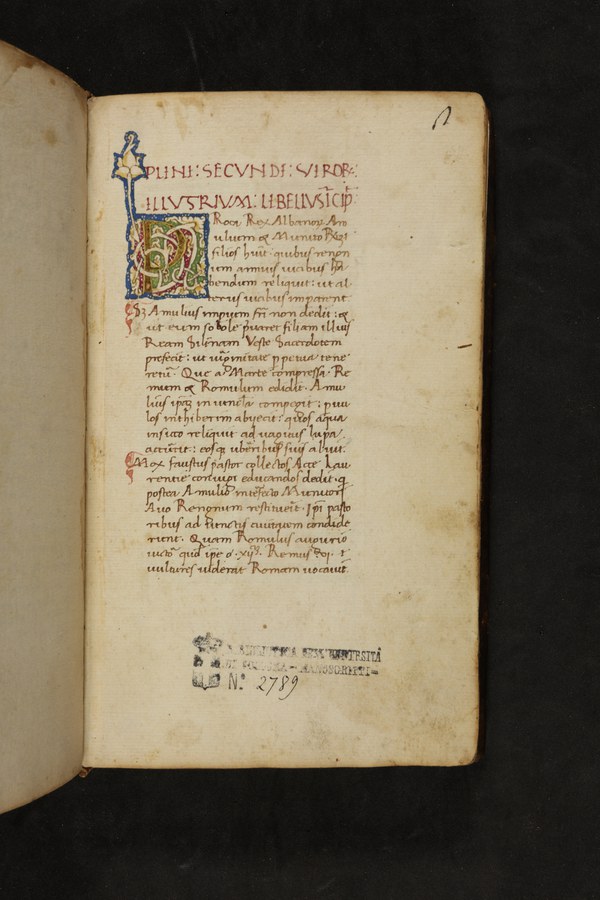 PLINI: SECVNDI: VIROR:
ILLVSTRIVM: LIBELLVS ĪCIP̄
PRoca Rex Albanoꝝ Am
ulium & Munito Regē
filios huīt. quibus regnon
um annuis uicibus hā
bendum reliquit: ut al
ternis uicibus imparent
Sꝫ Amulius impium frī non dedit: &
ut eum sobole pͥuaret filiam illius
Ream Siluiam Veste Sacerdotem
prefecit: ut uirginitate ꝑpetua tene
retur. Que a Marte compressa. Re
mum & Romulum edidit. Amu
lius ipsam in uincla compegit: puu
los in thiberim abiecit: quos aqua
in sicco reliquit ad uagitus lupa
accurrit: eosqꝫ uberibus suis aluit.
Mox faustus pastor collectos Acce Lau
rentie coniugi educandos dedit. q
postea Amulio interfecto Munitori
Auo Regnum restituerunt. Ipsi pasto
ribus ad functis ciuitatem condide
runt. Quam Romulus augurio
uictor quod ipse .xij. Remus .
uultures uiderat Romam uocauit.
BIBLIOTECA UNIVERSITÀ
DI BOLOGNA - MANOSCRITTI -
N° 2789